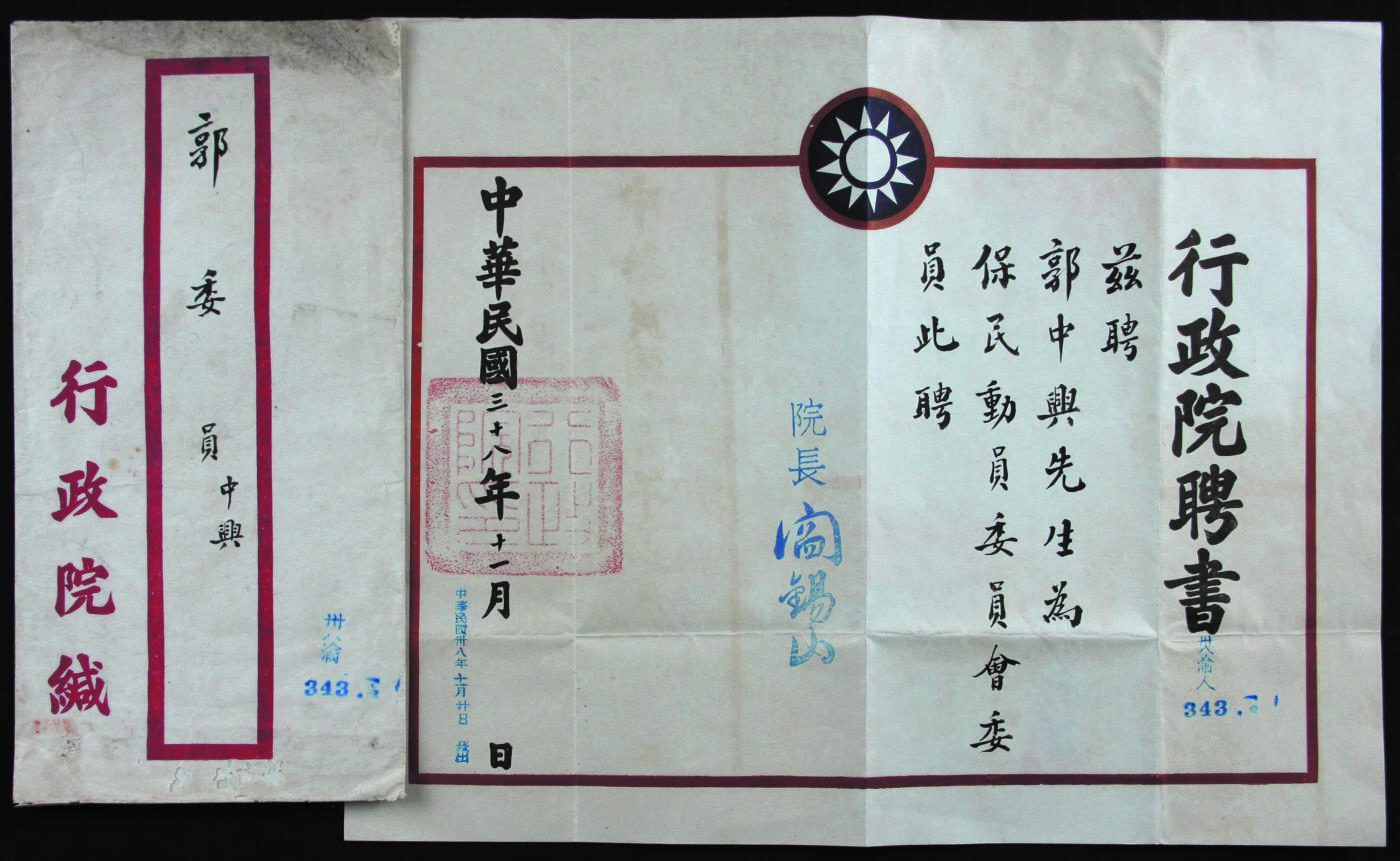 行政院聘書
茲聘
郭中興先生為
保民動員委員會委
員此聘
院長 閻錫山
中華民國三十八年十一月 日
中華民國卅八年十一月廿日 發出
343.
郭委員中興
行政院緘
343.